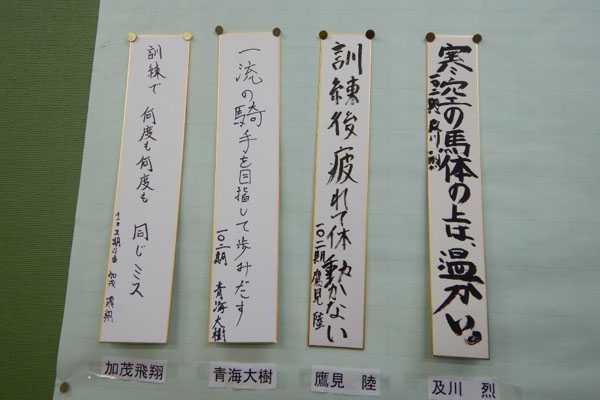 寒空の馬体の上は、温かい。
一〇二期 及川 烈
及川 烈
訓練後疲れて体動かない
一〇二期 鷹見 陸
鷹見 陸
一流の騎手を目指して歩みだす
一〇二期 青海大樹
青海大樹
訓練で 何度も何度も 同じミス
加茂 飛翔
加茂飛翔